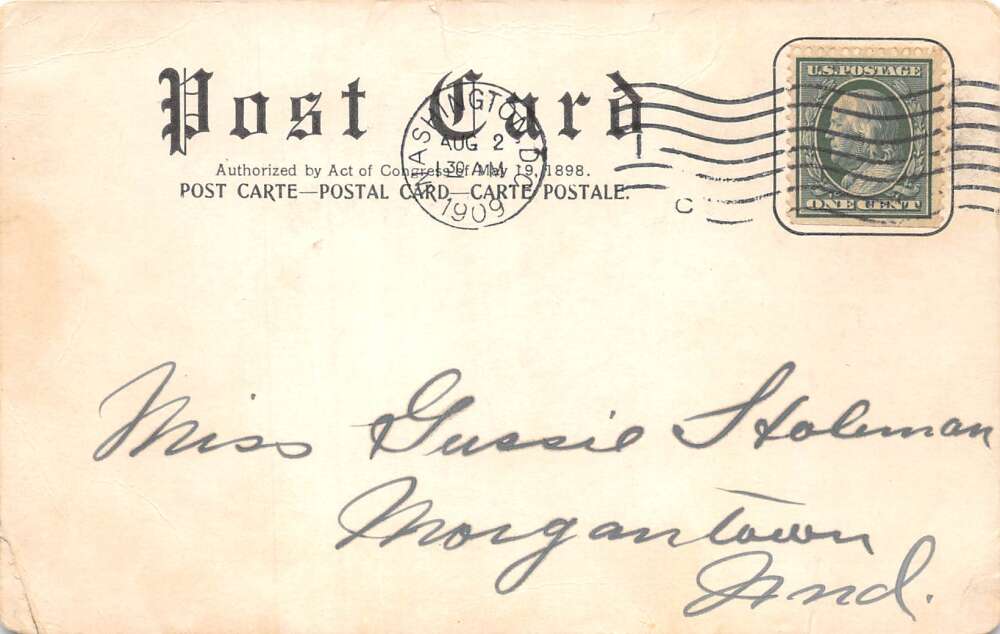 Post Card
Authorized by Act of Congress of May 19, 1898.
POST CARTE—POSTAL CARD—CARTE POSTALE.
WASHINGTON, D.C.
AUG 2
1 30 AM
1909
C
U.S. POSTAGE
ONE CENT
Miss Gussie Stoleman
Morgantown
Ind.